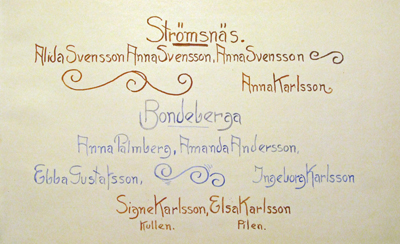 Strömsnäs.
Alida Svensson Anna Svensson, Anna Svensson
Anna Karlsson
Bondeberga
Anna Palmberg, Amanda Andersson,
Ebba Gustafsson, Ingeborg Karlsson
Signe Karlsson, Elsa Karlsson
Kullen. Pilen.